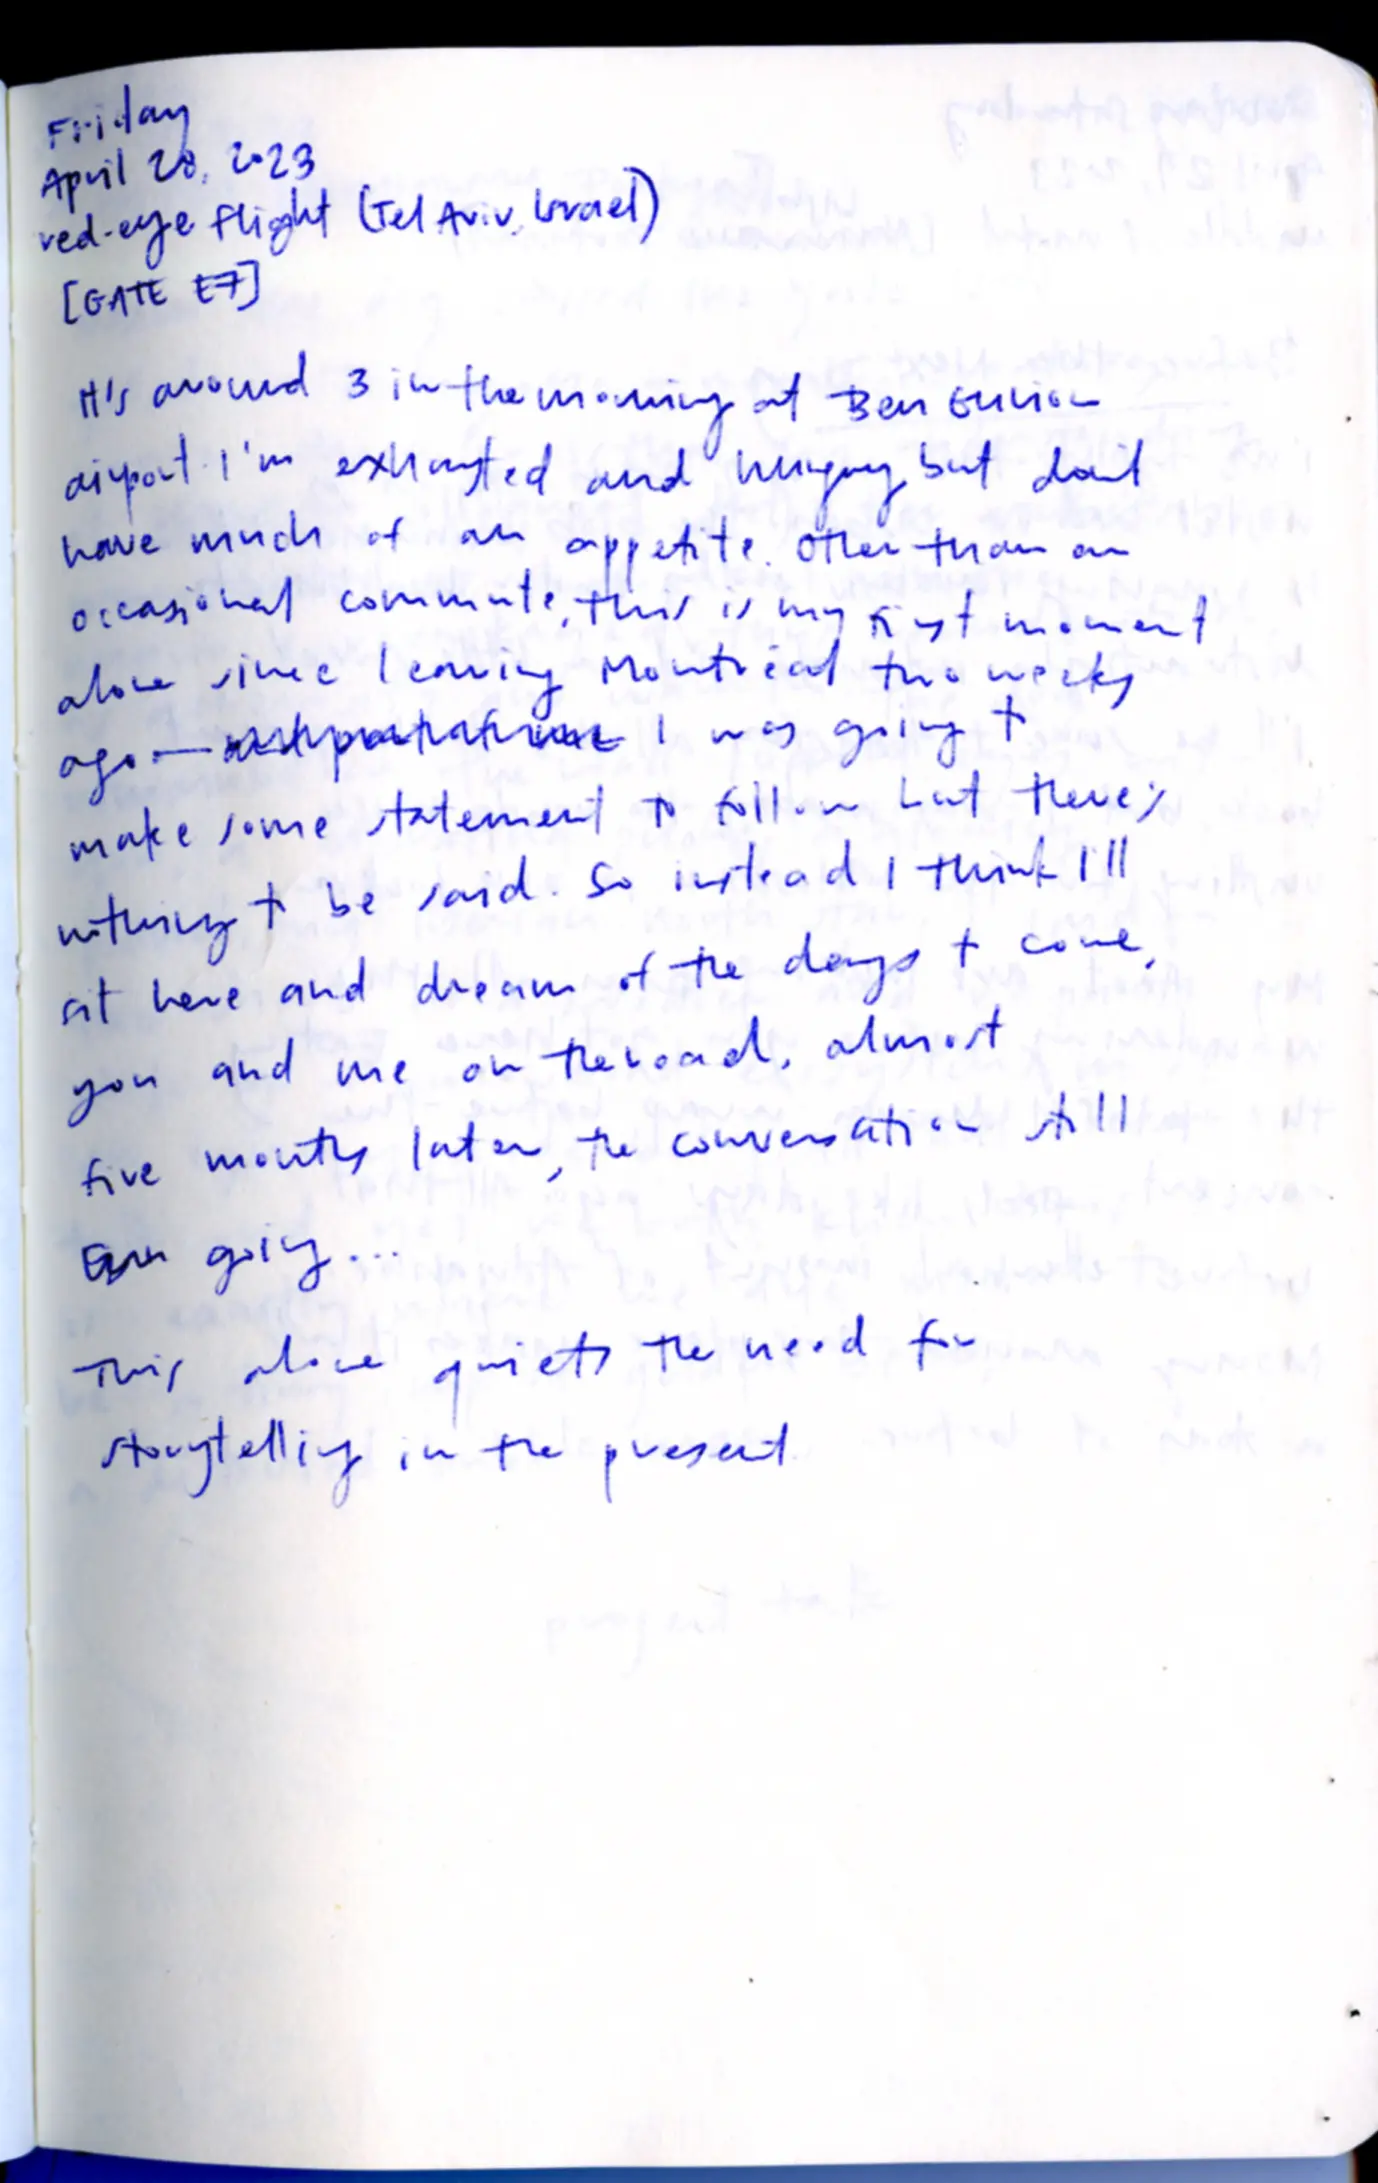 Friday
April 28, 2023
red-eye flight (Tel Aviv, Israel)
[GATE E7]
It's around 3 in the morning at Ben Gurion
airport. I'm exhausted and hungry but don't
have much of an appetite. Other than an
occasional commute, this is my first moment
alone since leaving Montréal two weeks
ago — I was going t
make some statement to follow but there's
nothing t be said. So instead I think I'll
sit here and dream of the days t come,
you and me on the road. almost
five months later, the conversation still
going...
This alone quiets the need for
storytelling in the present.